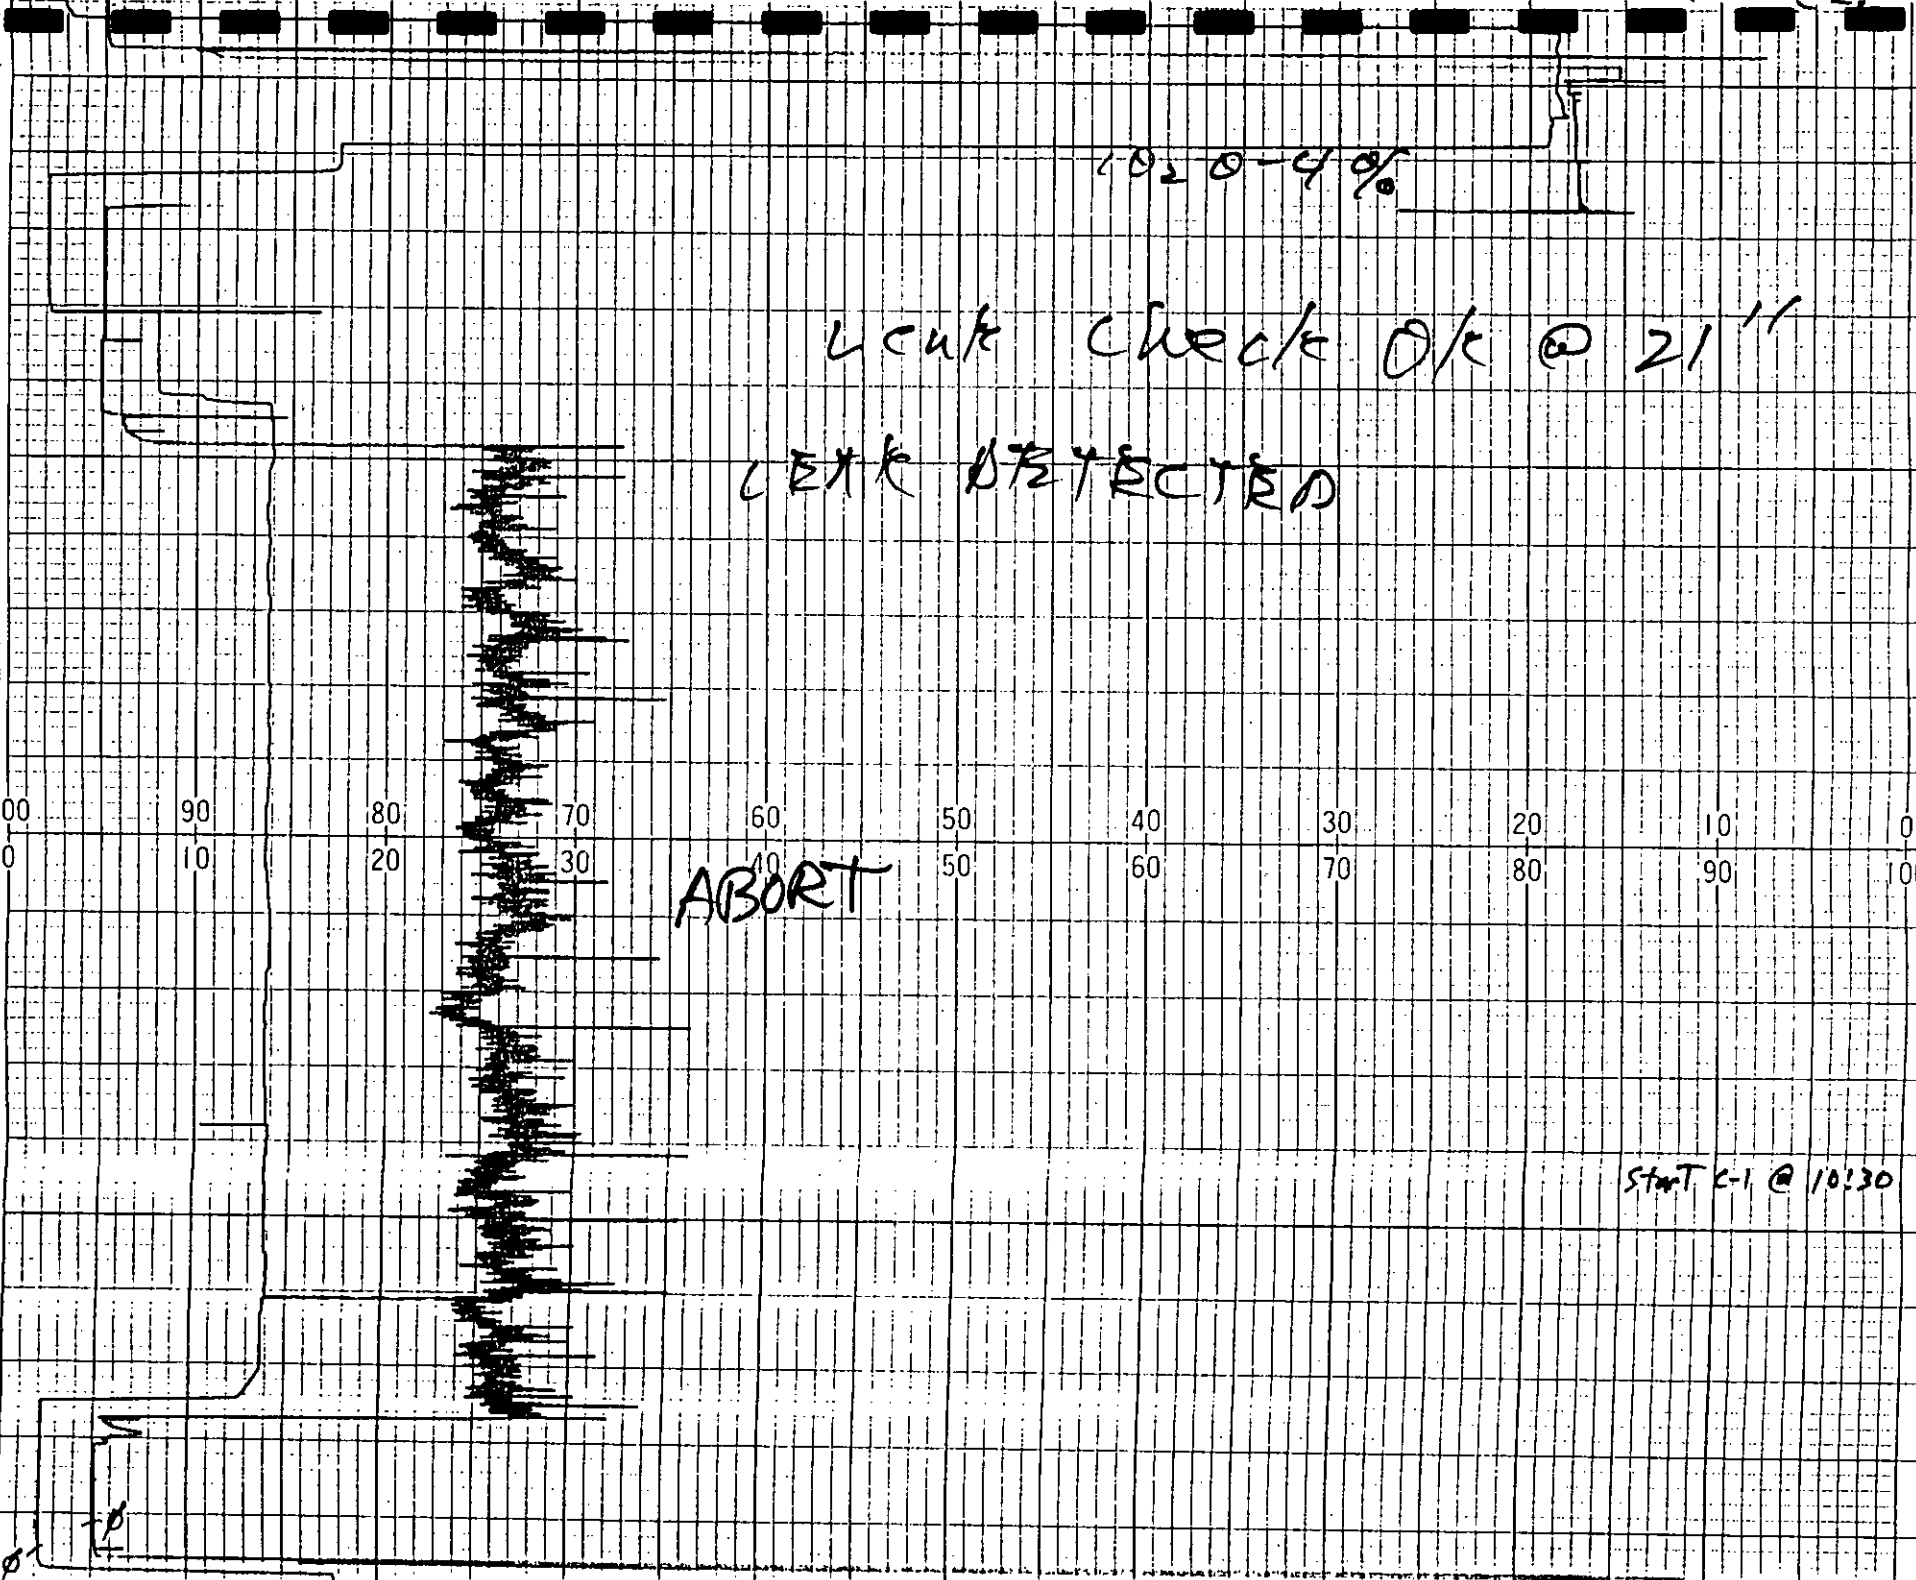 O₂ 0-4%
Leak Check OK @ 21"
LEAK DETECTED
00 90 80 70 60 50 40 30 20 10 0
0 10 20 30 40 50 60 70 80 90 100
ABORT
StarT C-1 @ 10:30
ø
ø